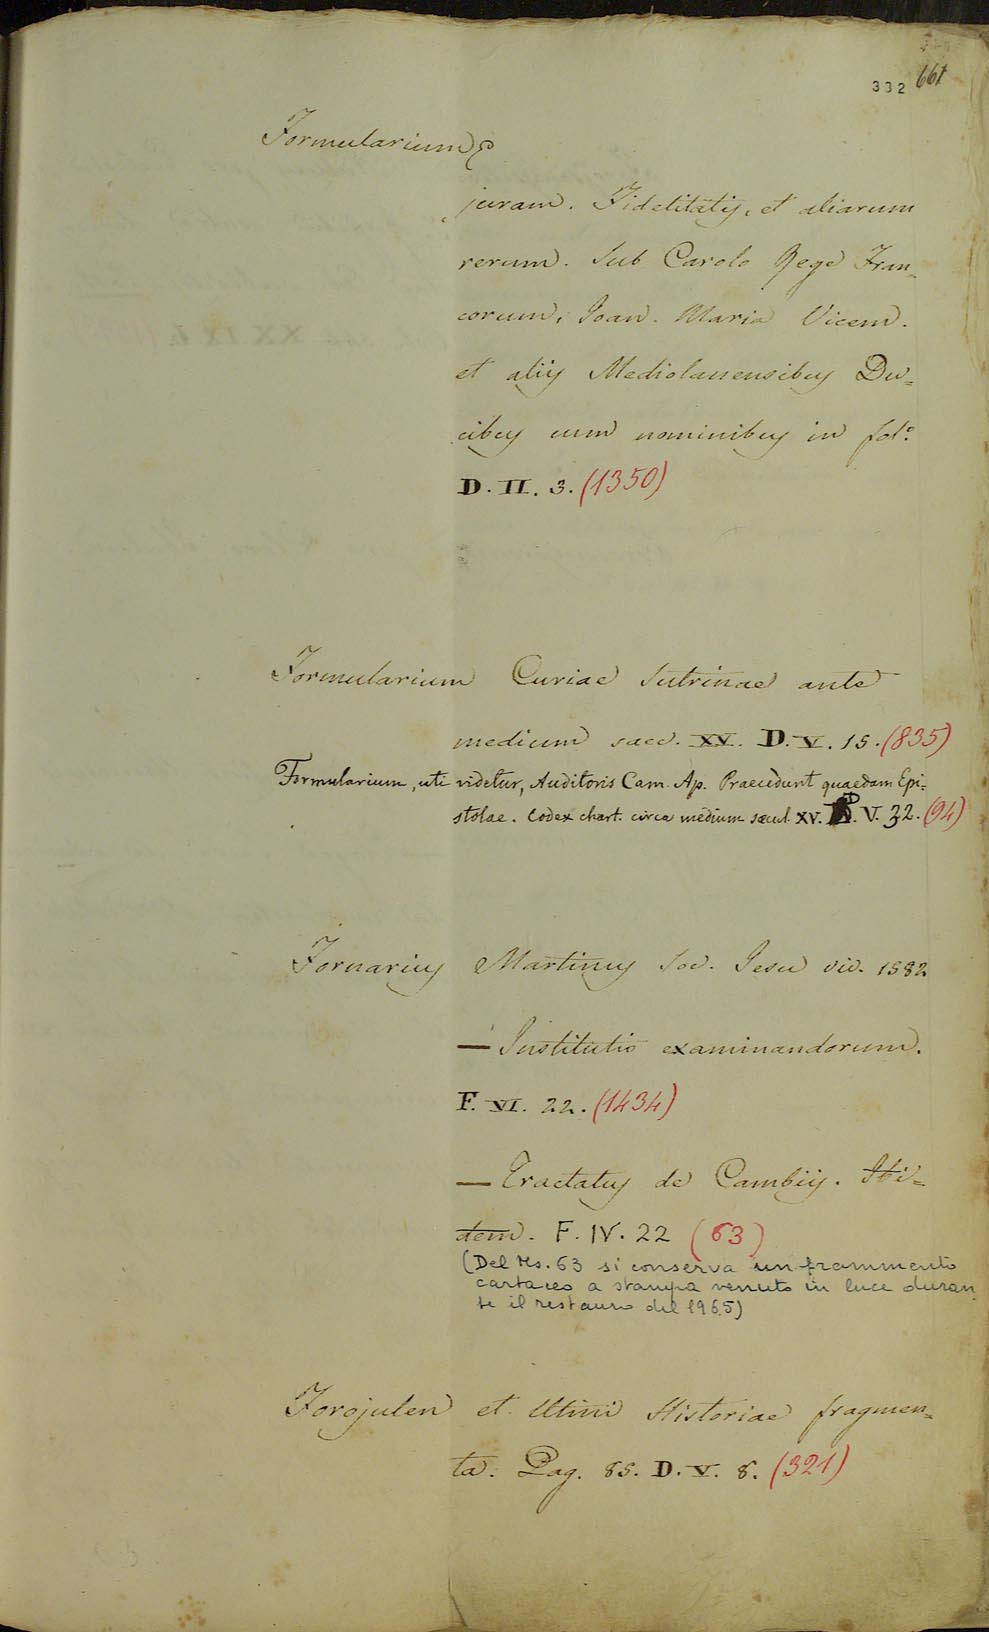 332 661
Formularium
juram. Fidelitatis, et aliarum
rerum. Sub Carolo Rege Fran=
corum, Joan. Maria Vicem.
et aliis Mediolanensibus Du=
cibus cum nominibus in fol.º
D. II. 3. (1350)
Formularium Curiae Sutrinae ante
medium saec. XV. D. V. 15. (835)
Formularium, uti videtur, Auditoris Cam. Ap. Praecedunt quaedam Epi=
stolae. Codex chart. circa medium saecul. XV. D. V. 32. (94)
Fornarius Martinus Soc. Jesu viv. 1582
— Institutio examinandorum.
F. VI. 22. (1434)
— Tractatus de Cambiis. Ibi=
dem. F. IV. 22 (63)
(Del Ms. 63 si conserva un frammento
cartaceo a stampa venuto in luce duran
te il restauro del 1965)
Forojulen et Utini Historiae fragmen=
ta. Pag. 85. D. V. 8. (321)